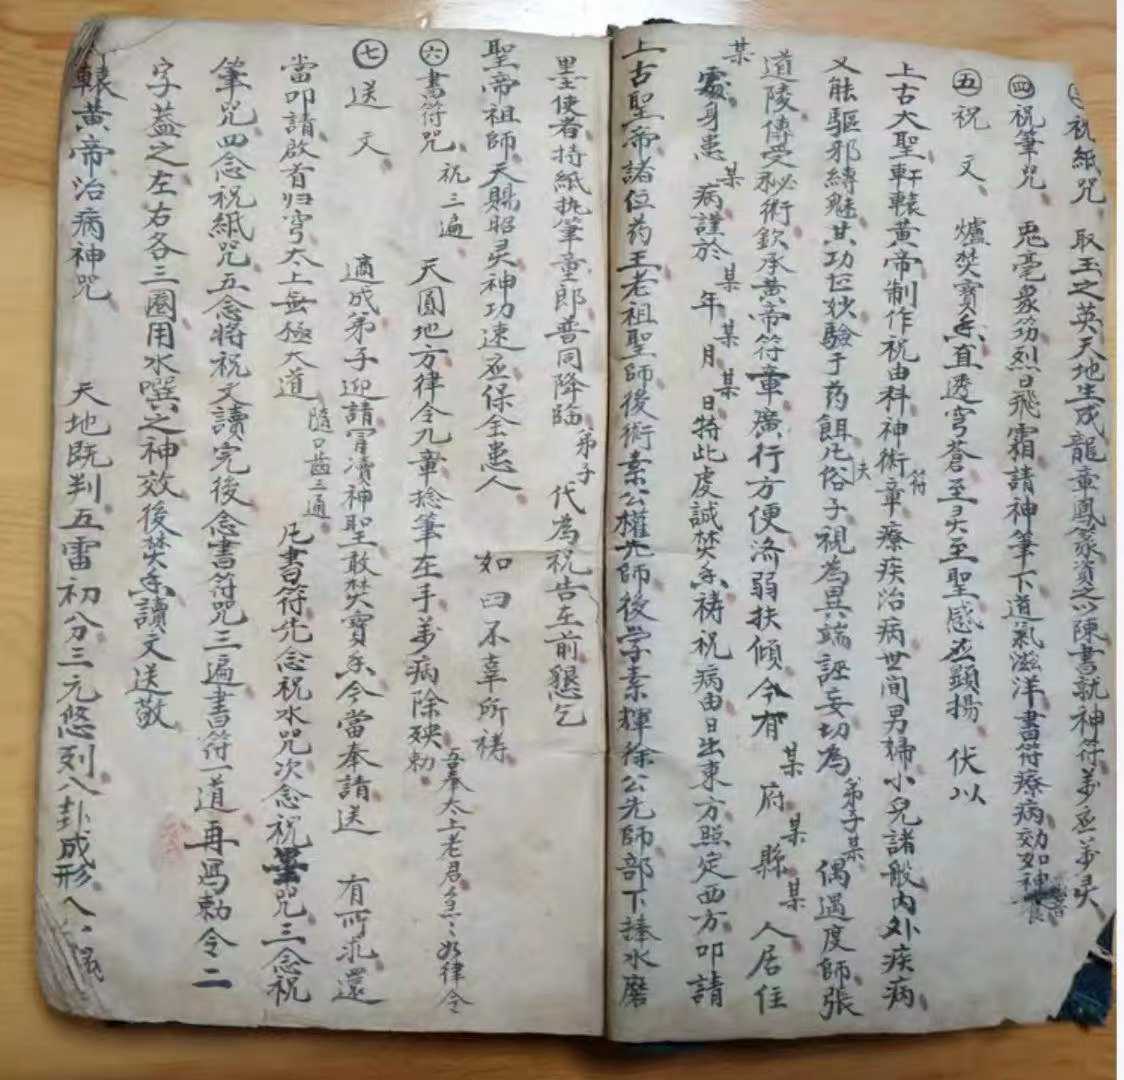 ㊂祝紙咒 取玉之英天地生成龍章鳳篆資之以陳書就神符萬丞萬灵
㊃祝筆咒 兎毫象筯烈日飛霜請神筆下道氣滋洋書符療病効如神
㊄祝文 爐焚寶香直透穹蒼至灵至聖感丞顕揚 伏以
上古大聖軒轅黃帝制作祝由科神術符章療疾治病世间男婦小兒諸般內外疾病
又能驅邪縛魅其功巨妙驗于药餌凡俗夫子視為異端誣妄切為弟子某偶遇度師張
道陵傳受祕術欽承黃帝符章廣行方便济弱扶傾今有某府某縣某人居住
某處身患某病謹於某年某月某日特此虔誠焚香祷祝病由日出東方照定西方叩請
上古聖帝諸位药王老祖聖師後術素公權先師後学素輝徐公先師部下捧水磨
墨使者持紙执筆童郎普同降臨弟子代為祝告左前懇乞
聖帝祖師天賜昭灵神功速丞保全患人 如曰不辜所祷
㊅書符咒 祝三遍 天圓地方律令九章捻筆在手萬病除殃勅 吾奉太上老君急々如律令
㊆送文 適成弟子迎請冒瀆神聖敢焚寶香今當奉請送 有所求還
當叩請啟首归穹太上無極大道 隨口齒三通 凡書符先念祝水咒次念祝墨咒三念祝
筆咒四念祝紙咒五念將祝文讀完後念書符咒三遍書符一道再寫勅令二
字蓋之左右各三圈用水噀之神效後焚香讀文送敬
轅黃帝治病神咒 天地既判五雷初分三元悠列八卦成形